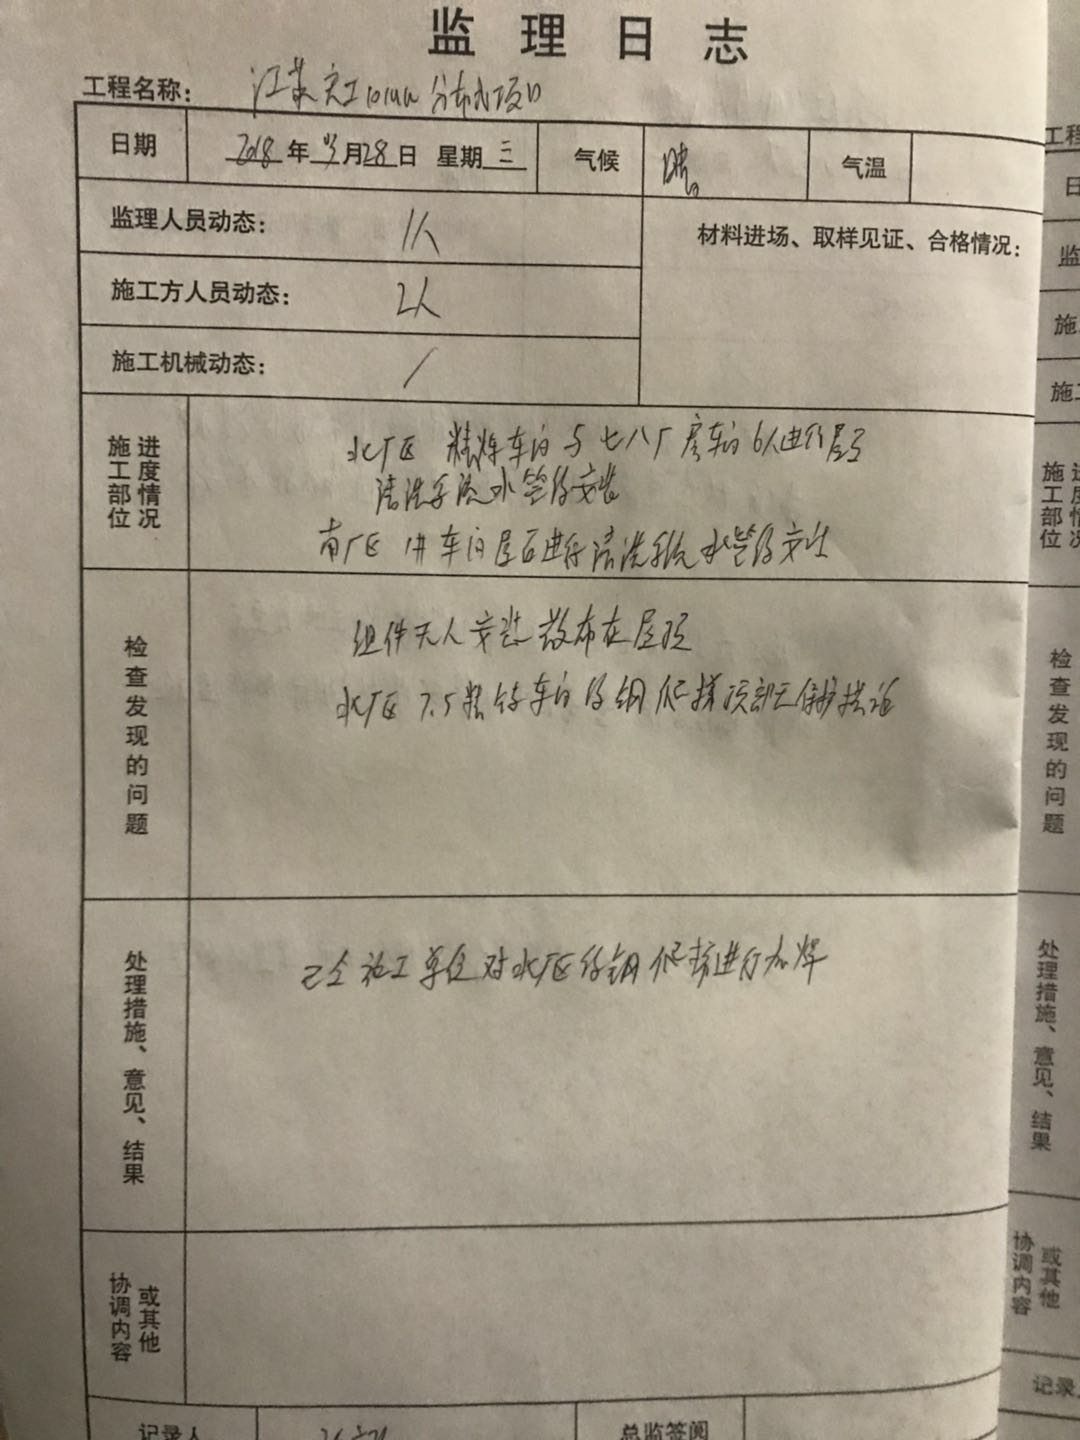 监理日志
工程名称: 江苏 10MW 分布式项目
日期 2018年 月28日 星期三 气候 晴 气温
监理人员动态: 1人
材料进场、取样见证、合格情况:
施工方人员动态: 2人
施工机械动态: /
施工部位 进度情况
北厂区 精炼车间与七八厂房车间6人进行屋顶
清洗系统水管的安装
南厂区 车间屋面进行清洗系统水管的安装
检查发现的问题
组件无人安装散布在屋顶
北厂区 7.5 车间的钢爬梯顶部无保护
处理措施、意见、结果
已令施工单位对北厂区的钢爬梯进行加焊
协调内容 或其他
记录人
总监签阅
工程
日
监
施
施工
施工部位 进度情况
检查发现的问题
处理措施、意见、结果
协调内容 或其他
记录